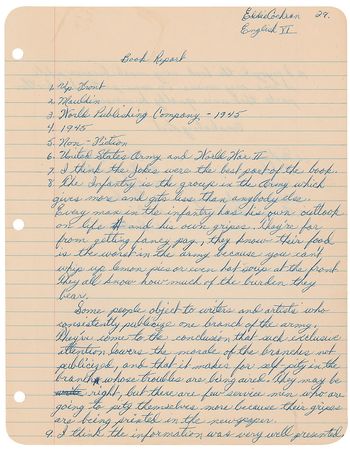 Eddie Cochran 29.
English VI
Book Report
1. Up Front
2. Mauldin
3. World Publishing Company - 1945
4. 1945
5. Non - Fiction
6. United States Army and World War II
7. I think the Jokes were the best part of the book.
8. The Infantry is the group in the Army which
gives more and gets less than anybody else.
Every man in the infantry has his own outlook
on life and his own gripes. They're far
from getting fancy pay, they know their food
is the worst in the army because you can't
whip up lemon pies or even hot soup at the front
they all know how much of the burden they
bear.
Some people object to writers and artists who
consistently publicize one branch of the army.
They're come to the conclusion that such exclusive
attention lowers the morale of the branches not
publicized, and that it makes for self pity in the
branch whose troubles are being aired. They may be
right, but there are few service men who are
going to pity themselves more because their gripes
are being printed in the newspaper.
9. I think the information was very well presented